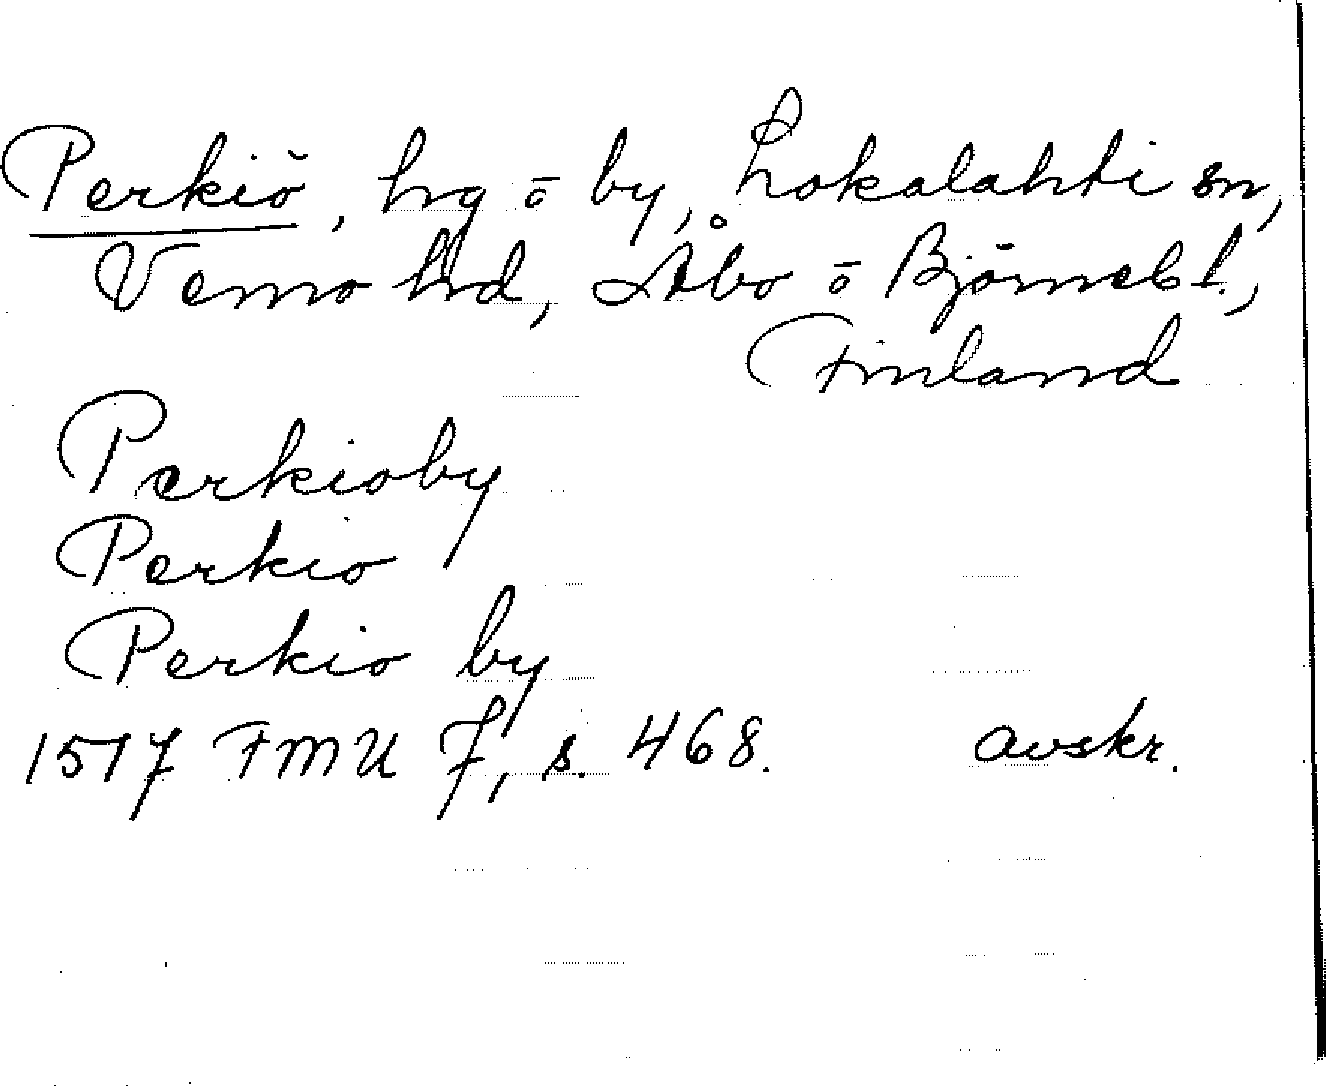 Perkiö, hg ō by, Lokalahti sn,
Vemo hd, Åbo ō Björneb l.,
Finland
Perkioby
Perkio
Perkio by
1517 FMU 7, s. 468. avskr.